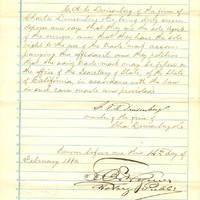 C. A. C. Duisenberg of the firm of
Charles Duisenberg &co being duly sworn
deposes and says that they are the sole agents
of the owner, and that they have the sole
right to the use of the trade mark accom-
panying this affidavit, and they petition
that the said trade mark may be filed in
the office of the Secretary of State, of the State
of California, in accordance with the law
in such cases made and provided.
C. A. C. Duisenberg
member of the firm of
Chas Duisenberg & Co
Sworn before me this 14th day of
February 188
Notary Public